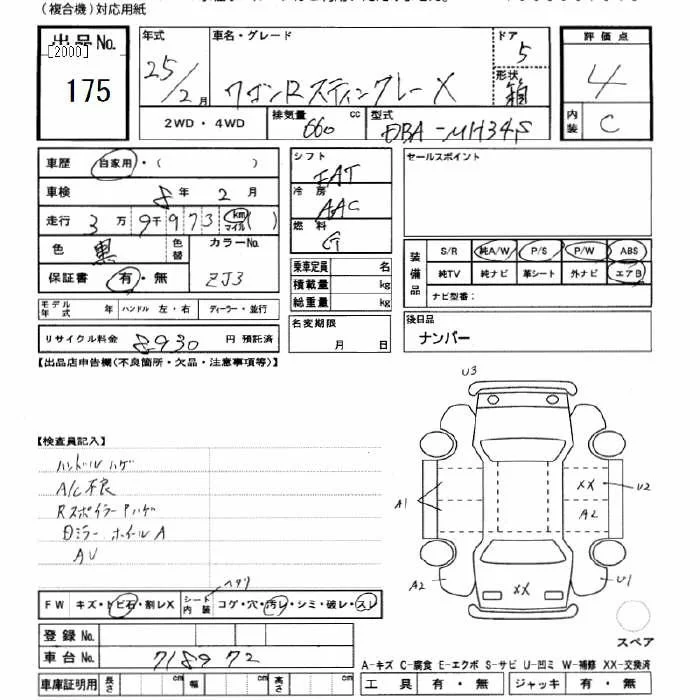 (複合機)対応用紙
出品No.
[2000]
175
年式
25/2月
車名・グレード
ワゴンRスティングレー X
ドア
5
形状
箱
評価点
4
内装
C
2WD・4WD
排気量
660 cc
型式
DBA-MH34S
車歴 自家用・( )
車検 8年2月
走行 3万9千973 km マイル ( )
色 黒 色替
カラーNo.
ZJ3
保証書 有・無
モデル年式 年 ハンドル 左・右 ディーラー・並行
リサイクル料金 8930 円 預託済
シフト
FAT
冷房
AAC
燃料
G
乗車定員 名
積載量 kg
総重量 kg
名変期限
月 日
セールスポイント
装備品
S/R 純A/W P/S P/W ABS
純TV 純ナビ 革シート 外ナビ エアB
ナビ型番:
後日品
ナンバー
【出品店申告欄(不良箇所・欠品・注意事項等)】
【検査員記入】
ハンドルハゲ
A/C不良
RスポイラーPハゲ
ホイルA
AU
U3
A1
XX
U2
A2
A2
XX
U1
スペア
ヘタリ
FW キズ・トビ石・割レX シート内装 コゲ・穴・汚レ・シミ・破レ・スレ
登録No.
車台No. 718972
車庫証明用 長さ cm 幅 cm 高さ cm
A-キズ C-腐食 E-エクボ S-サビ U-凹ミ W-補修 XX-交換済
工具 有・無 ジャッキ 有・無